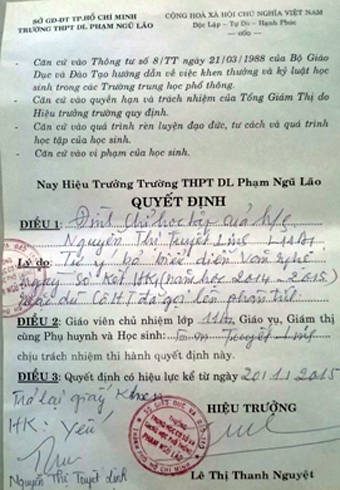 SỞ GD-ĐT TP.HỒ CHÍ MINH
TRƯỜNG THPT DL PHẠM NGŨ LÃO
CỘNG HOÀ XÃ HỘI CHỦ NGHĨA VIỆT NAM
Độc Lập - Tự Do - Hạnh Phúc
- Căn cứ vào Thông tư số 8/TT ngày 21/03/1988 của Bộ Giáo
Dục và Đào Tạo hướng dẫn về việc khen thưởng và kỷ luật học
sinh trong các Trường trung học phổ thông.
- Căn cứ vào quyền hạn và trách nhiệm của Tổng Giám Thị do
Hiệu trưởng trường quy định.
- Căn cứ vào quá trình rèn luyện đạo đức, tư cách và quá trình
học tập của học sinh.
- Căn cứ vào vi phạm của học sinh.
Nay Hiệu Trưởng Trường THPT DL Phạm Ngũ Lão
QUYẾT ĐỊNH
ĐIỀU 1: Đình chỉ học tập của h/s
Nguyễn Thị Tuyết Linh L11A1
Lý do: Tự ý bỏ biểu diễn văn nghệ
ngày Sơ Kết HK1 (năm học 2014-2015)
mặc dù Cô HT đã gọi lên phân tích
ĐIỀU 2: Giáo viên chủ nhiệm lớp 11A1, Giáo vụ, Giám thị
cùng Phụ huynh và Học sinh: Em Tuyết Linh
chịu trách nhiệm thi hành quyết định này.
ĐIỀU 3: Quyết định có hiệu lực kể từ ngày 20/1/2015
Trả lại giấy Khen
HK: Yếu
HIỆU TRƯỞNG
Nguyễn Thị Tuyết Linh
Lê Thị Thanh Nguyệt